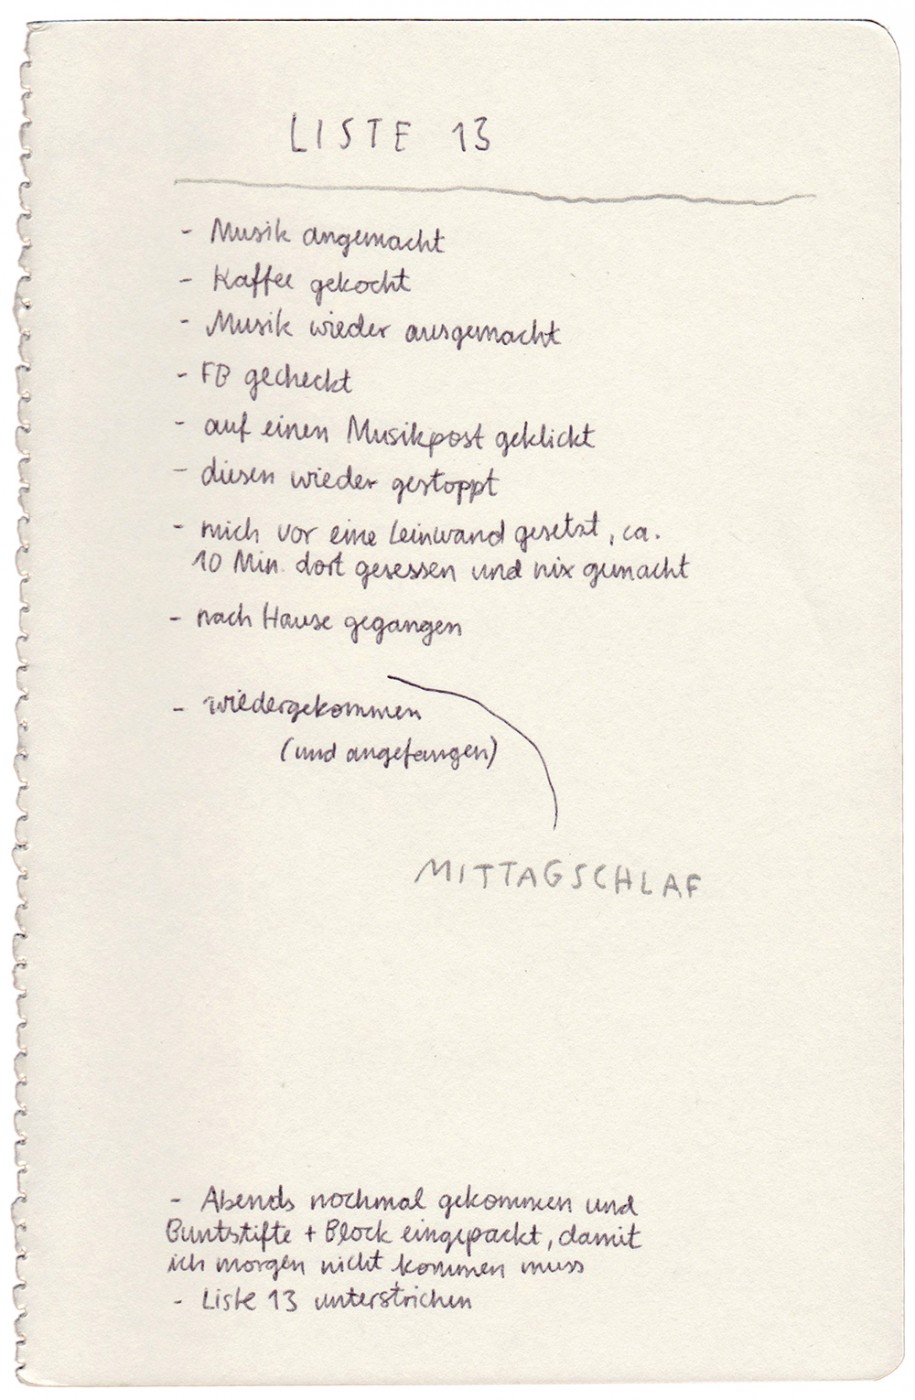 LISTE 13
- Musik angemacht
- Kaffee gekocht
- Musik wieder ausgemacht
- FB gecheckt
- auf einen Musikpost geklickt
- diesen wieder gestoppt
- mich vor eine Leinwand gesetzt, ca.
10 Min. dort gesessen und nix gemacht
- nach Hause gegangen
- wiedergekommen
(und angefangen)
MITTAGSCHLAF
- Abends nochmal gekommen und
Buntstifte + Block eingepackt, damit
ich morgen nicht kommen muss
- Liste 13 unterstrichen